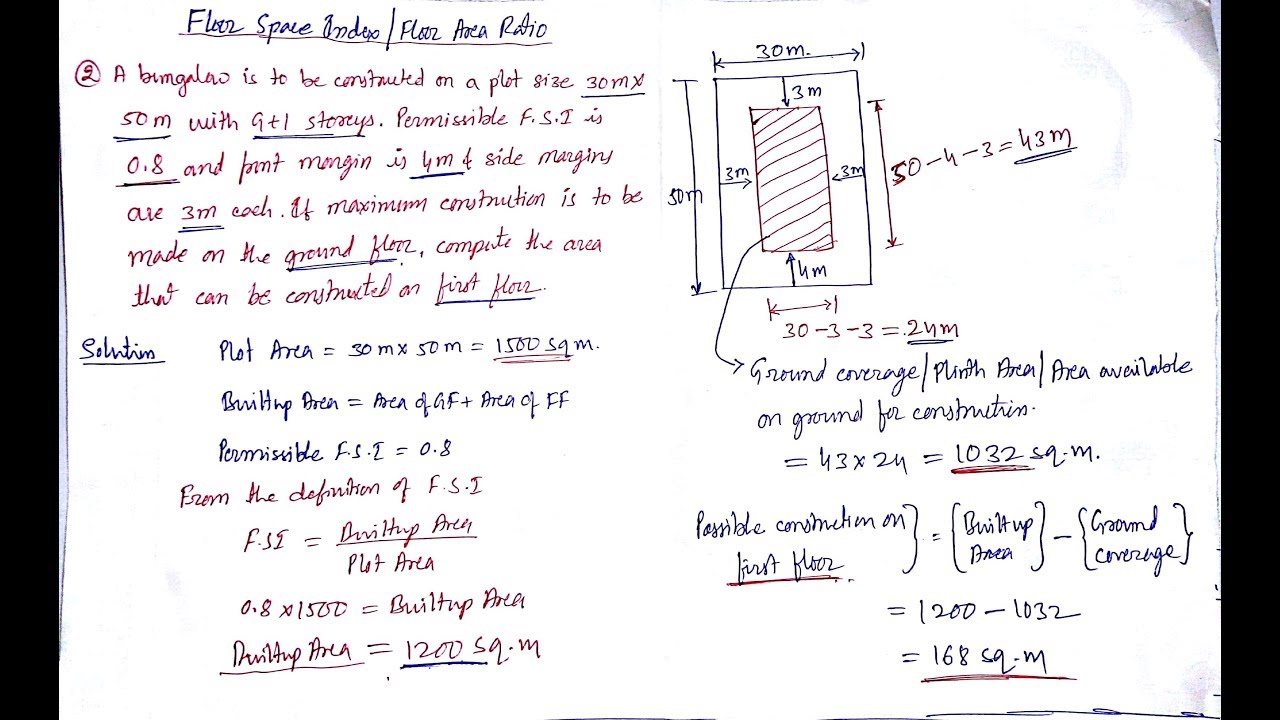 Floor Space Index/Floor Area Ratio
② A bungalow is to be constructed on a plot size 30m×
50m with G+1 storeys. Permissible F.S.I is
0.8 and front margin is 4m & side margins
are 3m each. If maximum construction is to be
made on the ground floor, compute the area
that can be constructed on first floor.
Solution
Plot Area = 30m × 50m = 1500 sqm.
Builtup Area = Area of GF + Area of FF
Permissible F.S.I = 0.8
From the definition of F.S.I
F.SI = Builtup Area
Plot Area
0.8 × 1500 = Builtup Area
Builtup Area = 1200 sq.m
30m.
3m
50m
3m
3m
50-4-3 = 43m
4m
30-3-3 = 24m
Ground coverage/Plinth Area/Area available
on ground for construction.
= 43 × 24 = 1032 sq.m.
Possible construction on
first floor
} = {Builtup Area} - {Ground coverage}
= 1200 - 1032
= 168 sq.m